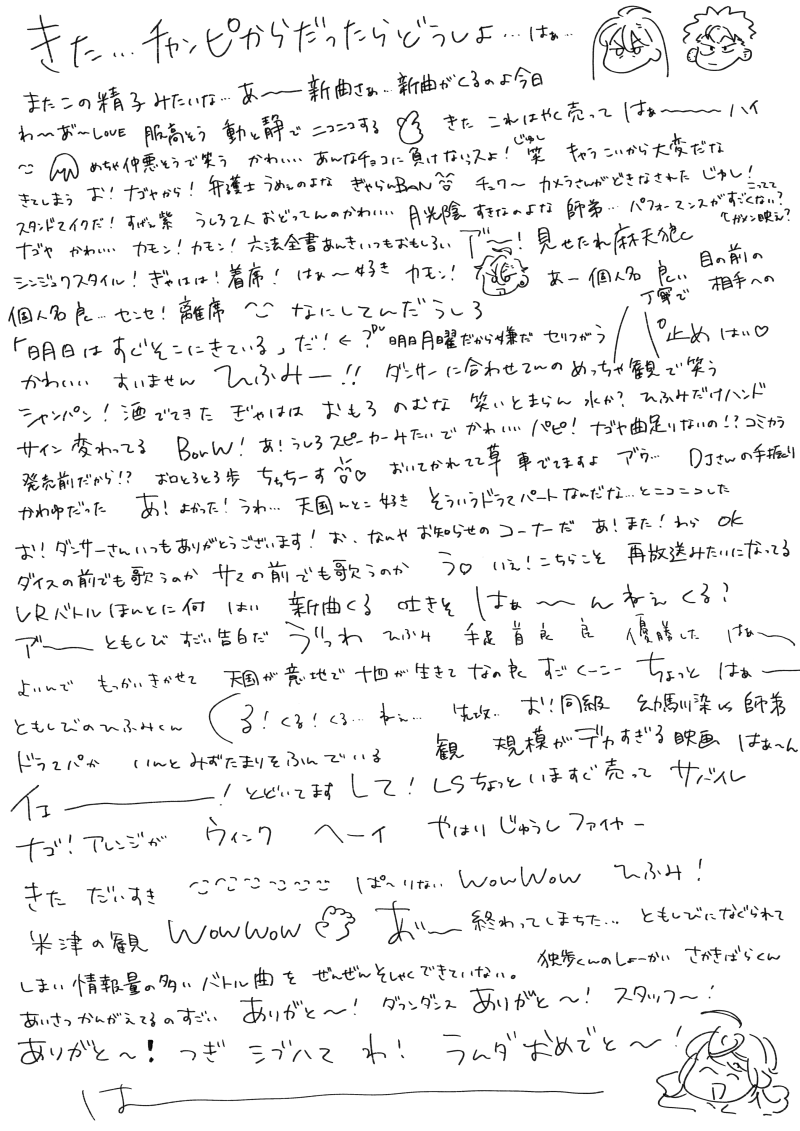 きた…チャンピからだったらどうしよ…はぁ…
またこの精子みたいな…あ〜新曲さぁ…新曲がくるのよ今日
わ〜お〜LOVE 服高そう 動と静でニコニコする きた これはやく売って はぁ〜ハイ
めちゃ仲悪そうで笑う かわいい あんなチョコに負けないっスよ!笑 キャラこいから大変だな
じゅし
きてしまう お!ナゴヤから!弁護士うめぇのよな ぎゃらんBaN チュワ〜 カメラさんがどきなされた じゅし!
スタンドマイクだ!すげぇ紫 うしろ2人おどってんのかわいい 月光陰 すきなのよな 師弟… パフォーマンスがすごくない?
こってて
ナゴヤ かわいい カモン!カモン!六法全書あんきいつもおもしろい ア〜!見せたれ麻天狼に
シンジュクスタイル!ぎゃはは!着席!はぁ〜好き カモン! あー個人名 良い 目の前の相手への
個人名良…センセ!離席 なにしてんだうしろ 丁寧で
「明日はすぐそこにきている」だ!←? 明日月曜だから嫌だ セリフがう 止め はい♡
かわいい すいません ひふみー!! ダンサーに合わせてんの めっちゃ観て笑う
シャンパン!酒でてきた ぎゃはは おもろ のむな 笑いとまらん 水か?ひふみだけハンド
サイン変わってる BanW!あ!うしろスピーカーみたいでかわいい パピ!ナゴヤ曲足りないの!?コミカラ
発売前だから!? おひとろとろ歩 ちもちーす♡ おいてかれてて草 車でてますよ アウ… DJさんの手振り
かわゆだった あ!よかった!うわ…天国んとこ好き そういうドラマパートなんだな…とニコニコした
お!ダンサーさんいつもありがとうございます!お、なんやお知らせのコーナーだ あ!また!わら OK
ダイスの前でも歌うのか サマの前でも歌うのか う♡ いえ!こちらこそ 再放送みたいになってる
VRバトルほんとに何 はい 新曲くる 吐きそ はぁ〜んねぇくる?
ア〜 ともしび すごい告白だ うっわ ひふみ 手足首良 良 優勝した はぁ〜
よいんで もっかいきかせて 天国が意地で十四が生きて なの良 すご くーこー ちょっと はぁー
ともしびのひふみくん くる!くる!くる…ねぇ… 先攻… お!!同級 幼馴染vs師弟
ドラマパか いんとみずたまりをふんでいる 観 規模がデカすぎる映画 はぁ〜ん
イェー!とどいてます して!LSちょっといますぐ売って サバイル
ナゴ!アレンジが ウィンク ヘーイ やはりじゅうしファイヤー
きた だいすき ぱ〜りない WowWow ひふみ!
米津の観 WowWow あ〜終わってしまちた… ともしびになぐられて
しまい情報量の多いバトル曲をぜんぜんそしゃくできていない。 独歩くんのしょーかい さかきばらくん
あいさつかんがえてるのすごい ありがと〜!ダウンダンス ありがと〜!スタッフ〜!
ありがと〜!つぎ シブハマ わ!うんダおめでと〜!
はー